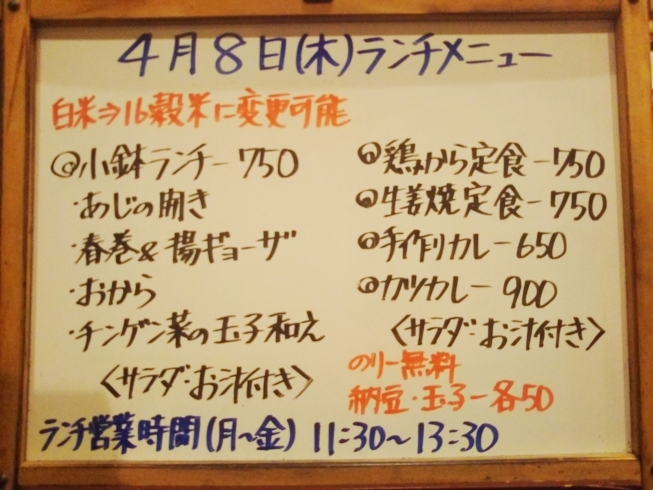 4月8日(木)ランチメニュー
白米⇒16穀米に変更可能
◎小鉢ランチー750
・あじの開き
・春巻&揚ギョーザ
・おから
・チンゲン菜の玉子和え
〈サラダ・お汁付き〉
◎鶏から定食ー750
◎生姜焼定食ー750
◎手作りカレー650
◎カツカレー900
〈サラダ・お汁付き〉
のりー無料
納豆・玉子ー各50
ランチ営業時間(月~金) 11:30~13:30